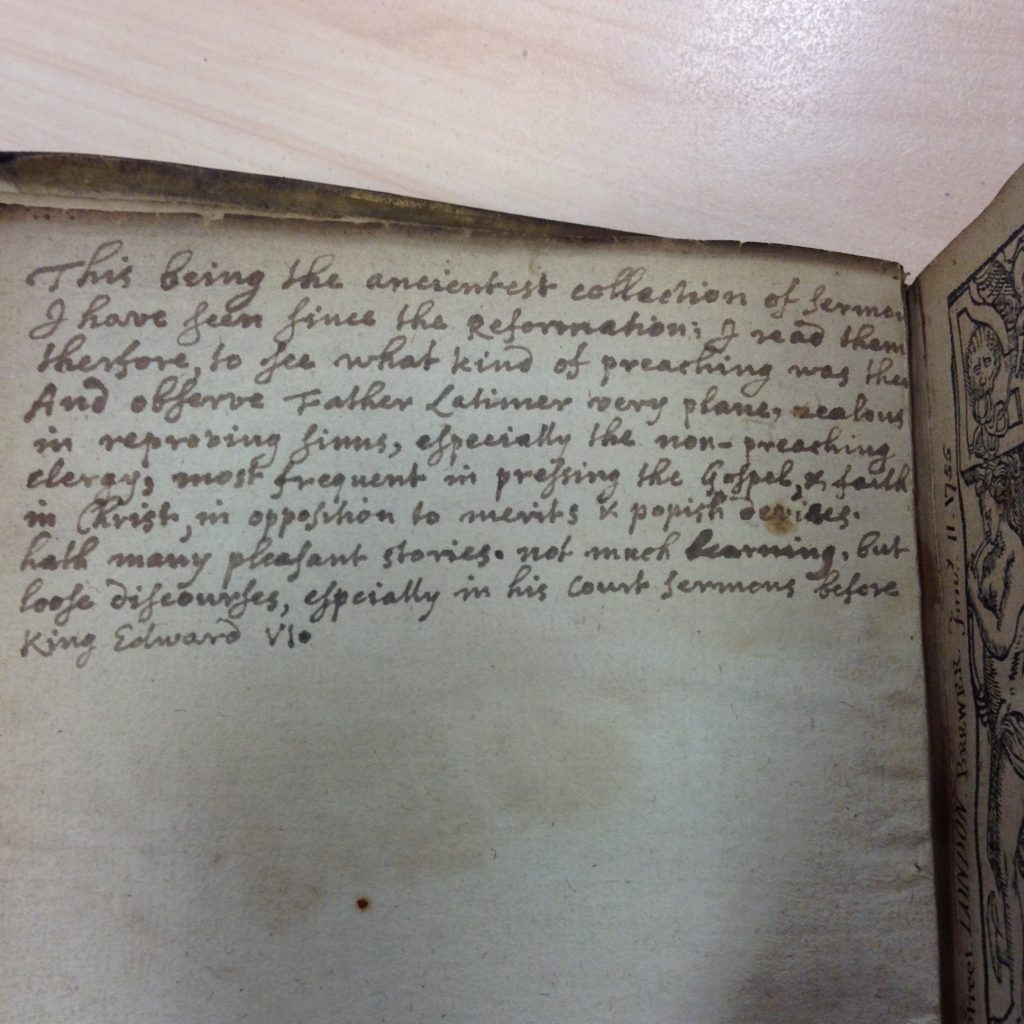 This being the ancientest collection of sermon
I have seen since the Reformation; I read them
therfore, to see what kind of preaching was then
And observe Father Latimer very plane, zealous
in reproving sinns, especially the non-preaching
clergy, most frequent in pressing the Gospel, & faith
in Christ, in opposition to merits & popish devises.
hath many pleasant stories. not much learning. but
loose discourses, especially in his Court sermons before
King Edward VI.
Street LONDON BREWER